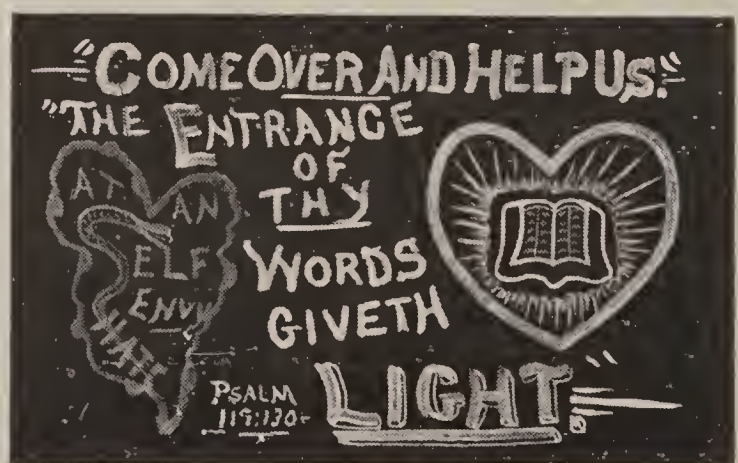 "COME OVER AND HELP US."
"THE ENTRANCE
OF
THY
WORDS
GIVETH
LIGHT."
PSALM
119:130
AT AN
ELF
ENVY
HATE